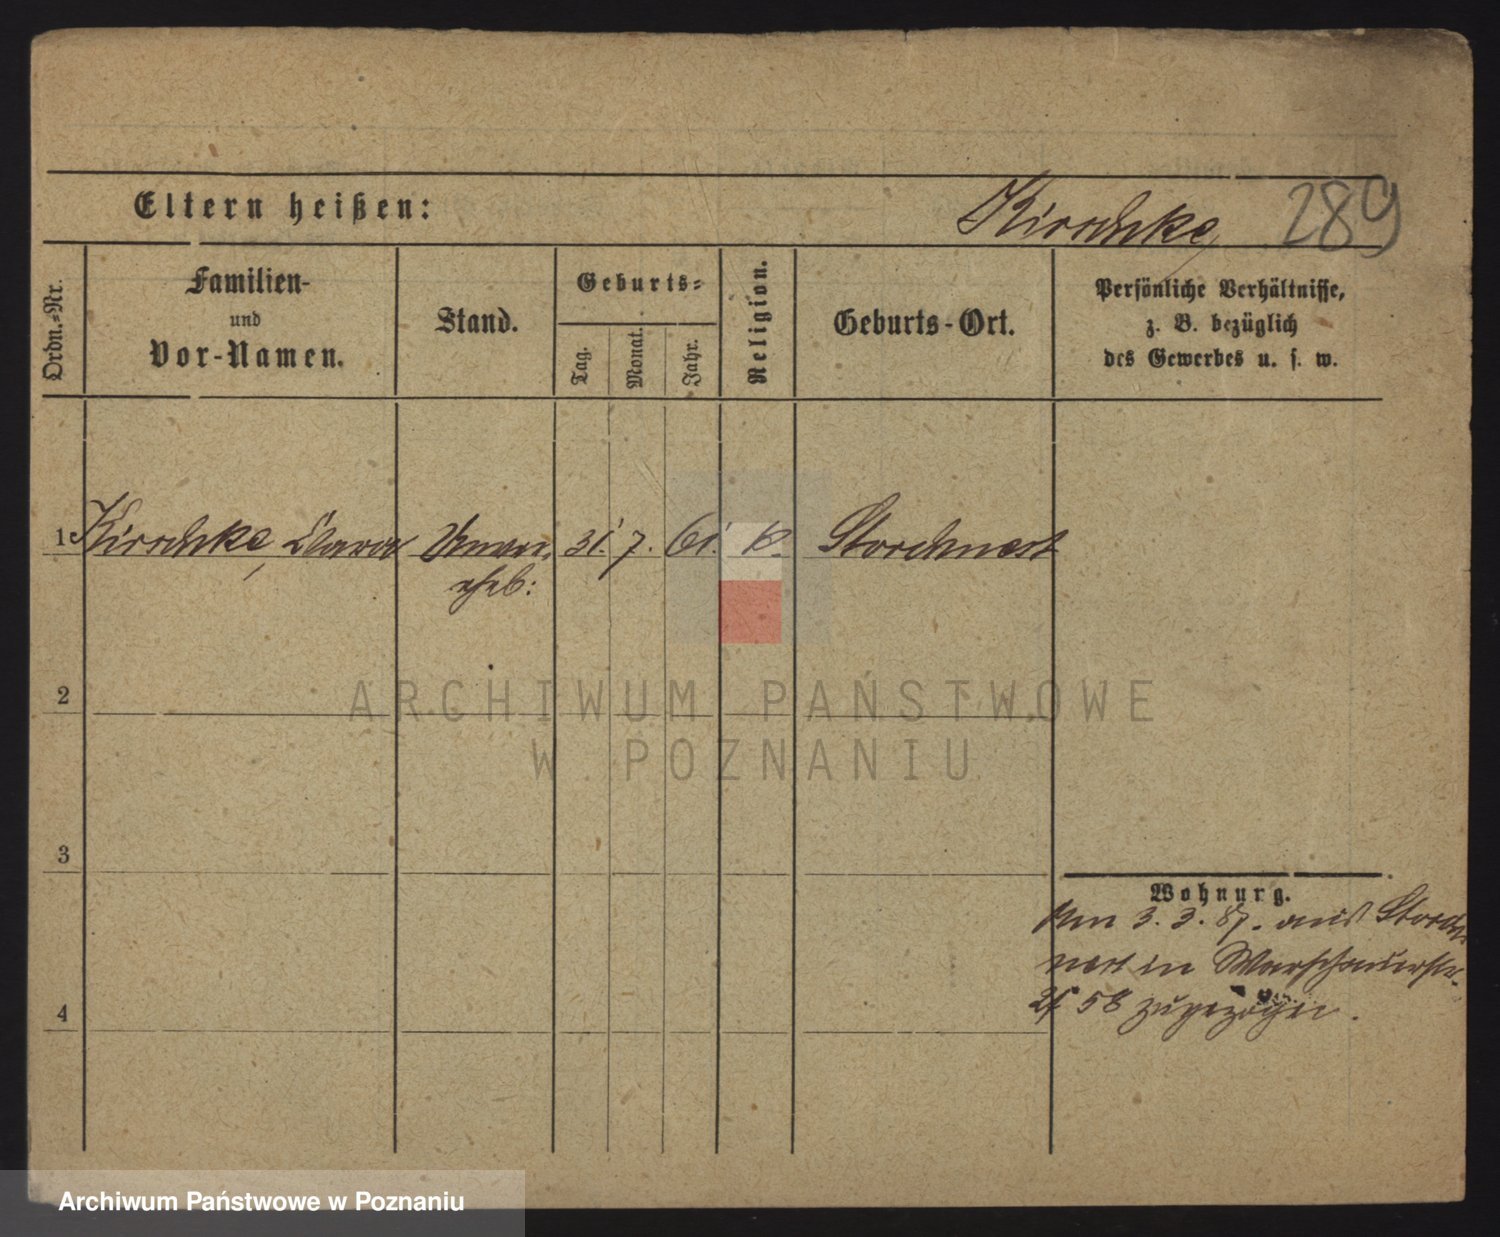 Eltern heißen:
Kirschke
289
Ordn.-Nr.
Familien-
und
Vor-Namen.
Stand.
Geburts-
Tag.
Monat.
Jahr.
Religion.
Geburts-Ort.
Persönliche Verhältnisse,
z. B. bezüglich
des Gewerbes u. s. w.
1 Kirschke, Clara Unver- 31. 7. 61. K. Storchnest
ehel:
2
3
4
Wohnung.
Am 3. 3. 87. aus Storch
nest in Warschauerstr.
58 zugezogen.
ARCHIWUM PAŃSTWOWE
W POZNANIU
Archiwum Państwowe w Poznaniu